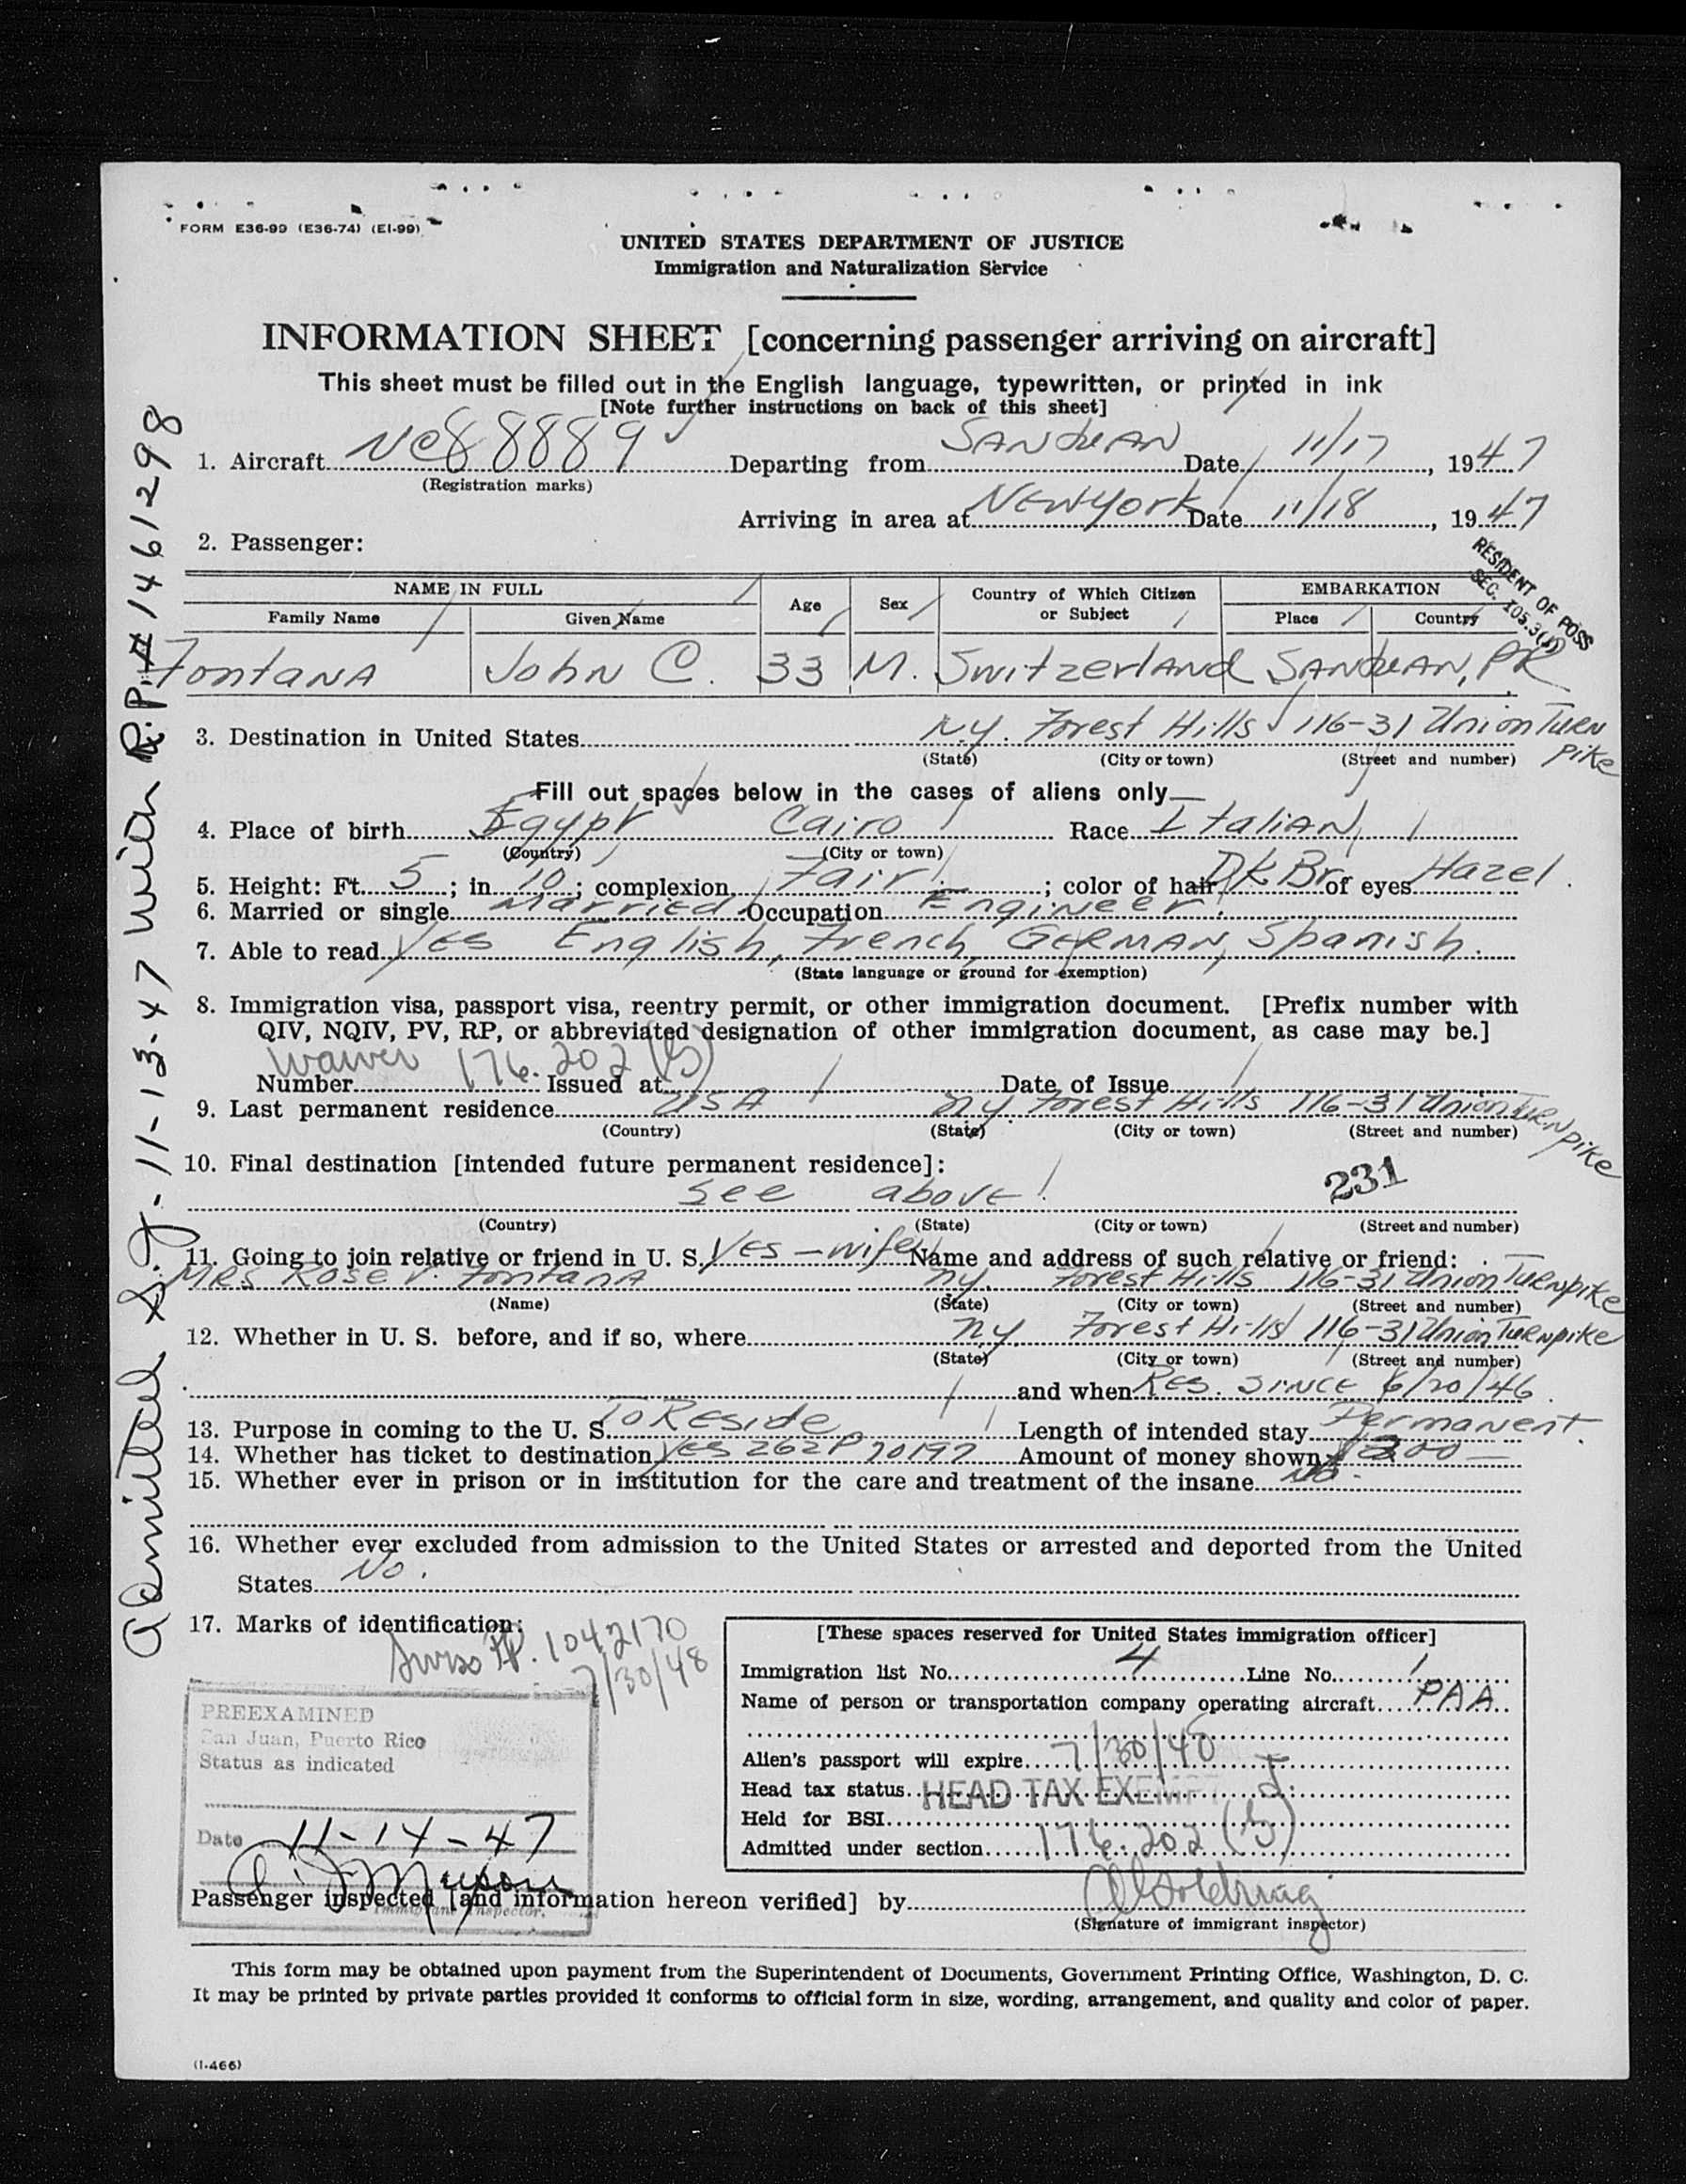 FORM E36-99 (E36-74) (E1-99)
UNITED STATES DEPARTMENT OF JUSTICE
Immigration and Naturalization Service
INFORMATION SHEET [concerning passenger arriving on aircraft]
This sheet must be filled out in the English language, typewritten, or printed in ink
[Note further instructions on back of this sheet]
1. Aircraft NC88889 Departing from SAN JUAN Date 11/17, 1947
(Registration marks)
Arriving in area at New York Date 11/18, 1947
2. Passenger:
RESIDENT OF POSS
SEC. 105.3
NAME IN FULL Age Sex Country of Which Citizen or Subject EMBARKATION
Family Name Given Name Place Country
Fontana John C. 33 M. Switzerland SAN JUAN, PR
3. Destination in United States N.Y. Forest Hills 116-31 Union Turn
pike
(State) (City or town) (Street and number)
Fill out spaces below in the cases of aliens only
4. Place of birth Egypt Cairo Race Italian
(Country) (City or town)
5. Height: Ft. 5; in. 10; complexion Fair; color of hair Dk Br. of eyes Hazel.
6. Married or single Married Occupation Engineer.
7. Able to read Yes English, French, German, Spanish.
(State language or ground for exemption)
8. Immigration visa, passport visa, reentry permit, or other immigration document. [Prefix number with
QIV, NQIV, PV, RP, or abbreviated designation of other immigration document, as case may be.]
Waiver 176.202 (b)
Number Issued at Date of Issue
9. Last permanent residence USA NY Forest Hills 116-31 Union Turnpike
(Country) (State) (City or town) (Street and number)
10. Final destination [intended future permanent residence]:
231
see above!
(Country) (State) (City or town) (Street and number)
11. Going to join relative or friend in U. S. Yes - wife Name and address of such relative or friend:
Mrs Rose V. Fontana NY. Forest Hills 116-31 Union Turnpike
(Name) (State) (City or town) (Street and number)
12. Whether in U. S. before, and if so, where NY. Forest Hills 116-31 Union Turnpike
(State) (City or town) (Street and number)
and when Res. since 6/20/46.
13. Purpose in coming to the U. S. To Reside Length of intended stay Permanent.
14. Whether has ticket to destination Yes 262P 70197 Amount of money shown $200-
15. Whether ever in prison or in institution for the care and treatment of the insane No.
16. Whether ever excluded from admission to the United States or arrested and deported from the United
States No.
17. Marks of identification:
Swiss PP. 1042170
7/30/48
[These spaces reserved for United States immigration officer]
Immigration list No. 4 Line No. 1
Name of person or transportation company operating aircraft PAA
Alien's passport will expire 7/30/48
Head tax status HEAD TAX EXEMPT
Held for BSI
Admitted under section 176.202 (b)
PREEXAMINED
San Juan, Puerto Rico
Status as indicated
Date 11-14-47
Immigrant Inspector.
Passenger inspected [and information hereon verified] by
(Signature of immigrant inspector)
This form may be obtained upon payment from the Superintendent of Documents, Government Printing Office, Washington, D. C.
It may be printed by private parties provided it conforms to official form in size, wording, arrangement, and quality and color of paper.
(I-466)
Admitted S.J. 11-13-47 with R.P. # 1461298